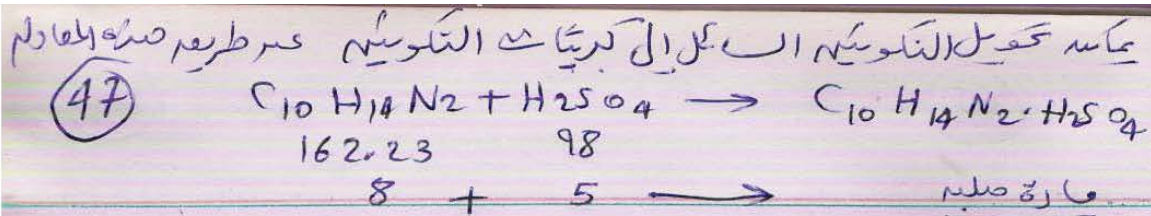 يمكن تحويل النكوتين السائل إلى كبريتات النكوتين عن طريق هذه المعادلة
(47) C10 H14 N2 + H2SO4 → C10 H14 N2·H2SO4
162.23 98
8 + 5 → مادة صلبه